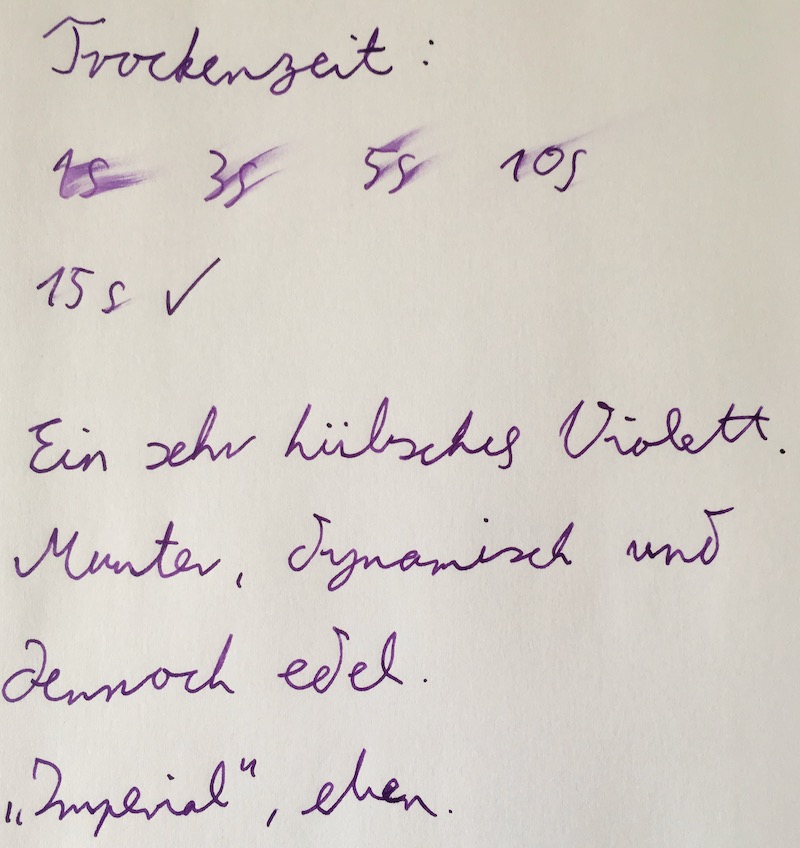 Trockenzeit:
1s 3s 5s 10s
15s ✓
Ein sehr hübsches Violett.
Munter, dynamisch und
dennoch edel.
„Imperial“, eben.